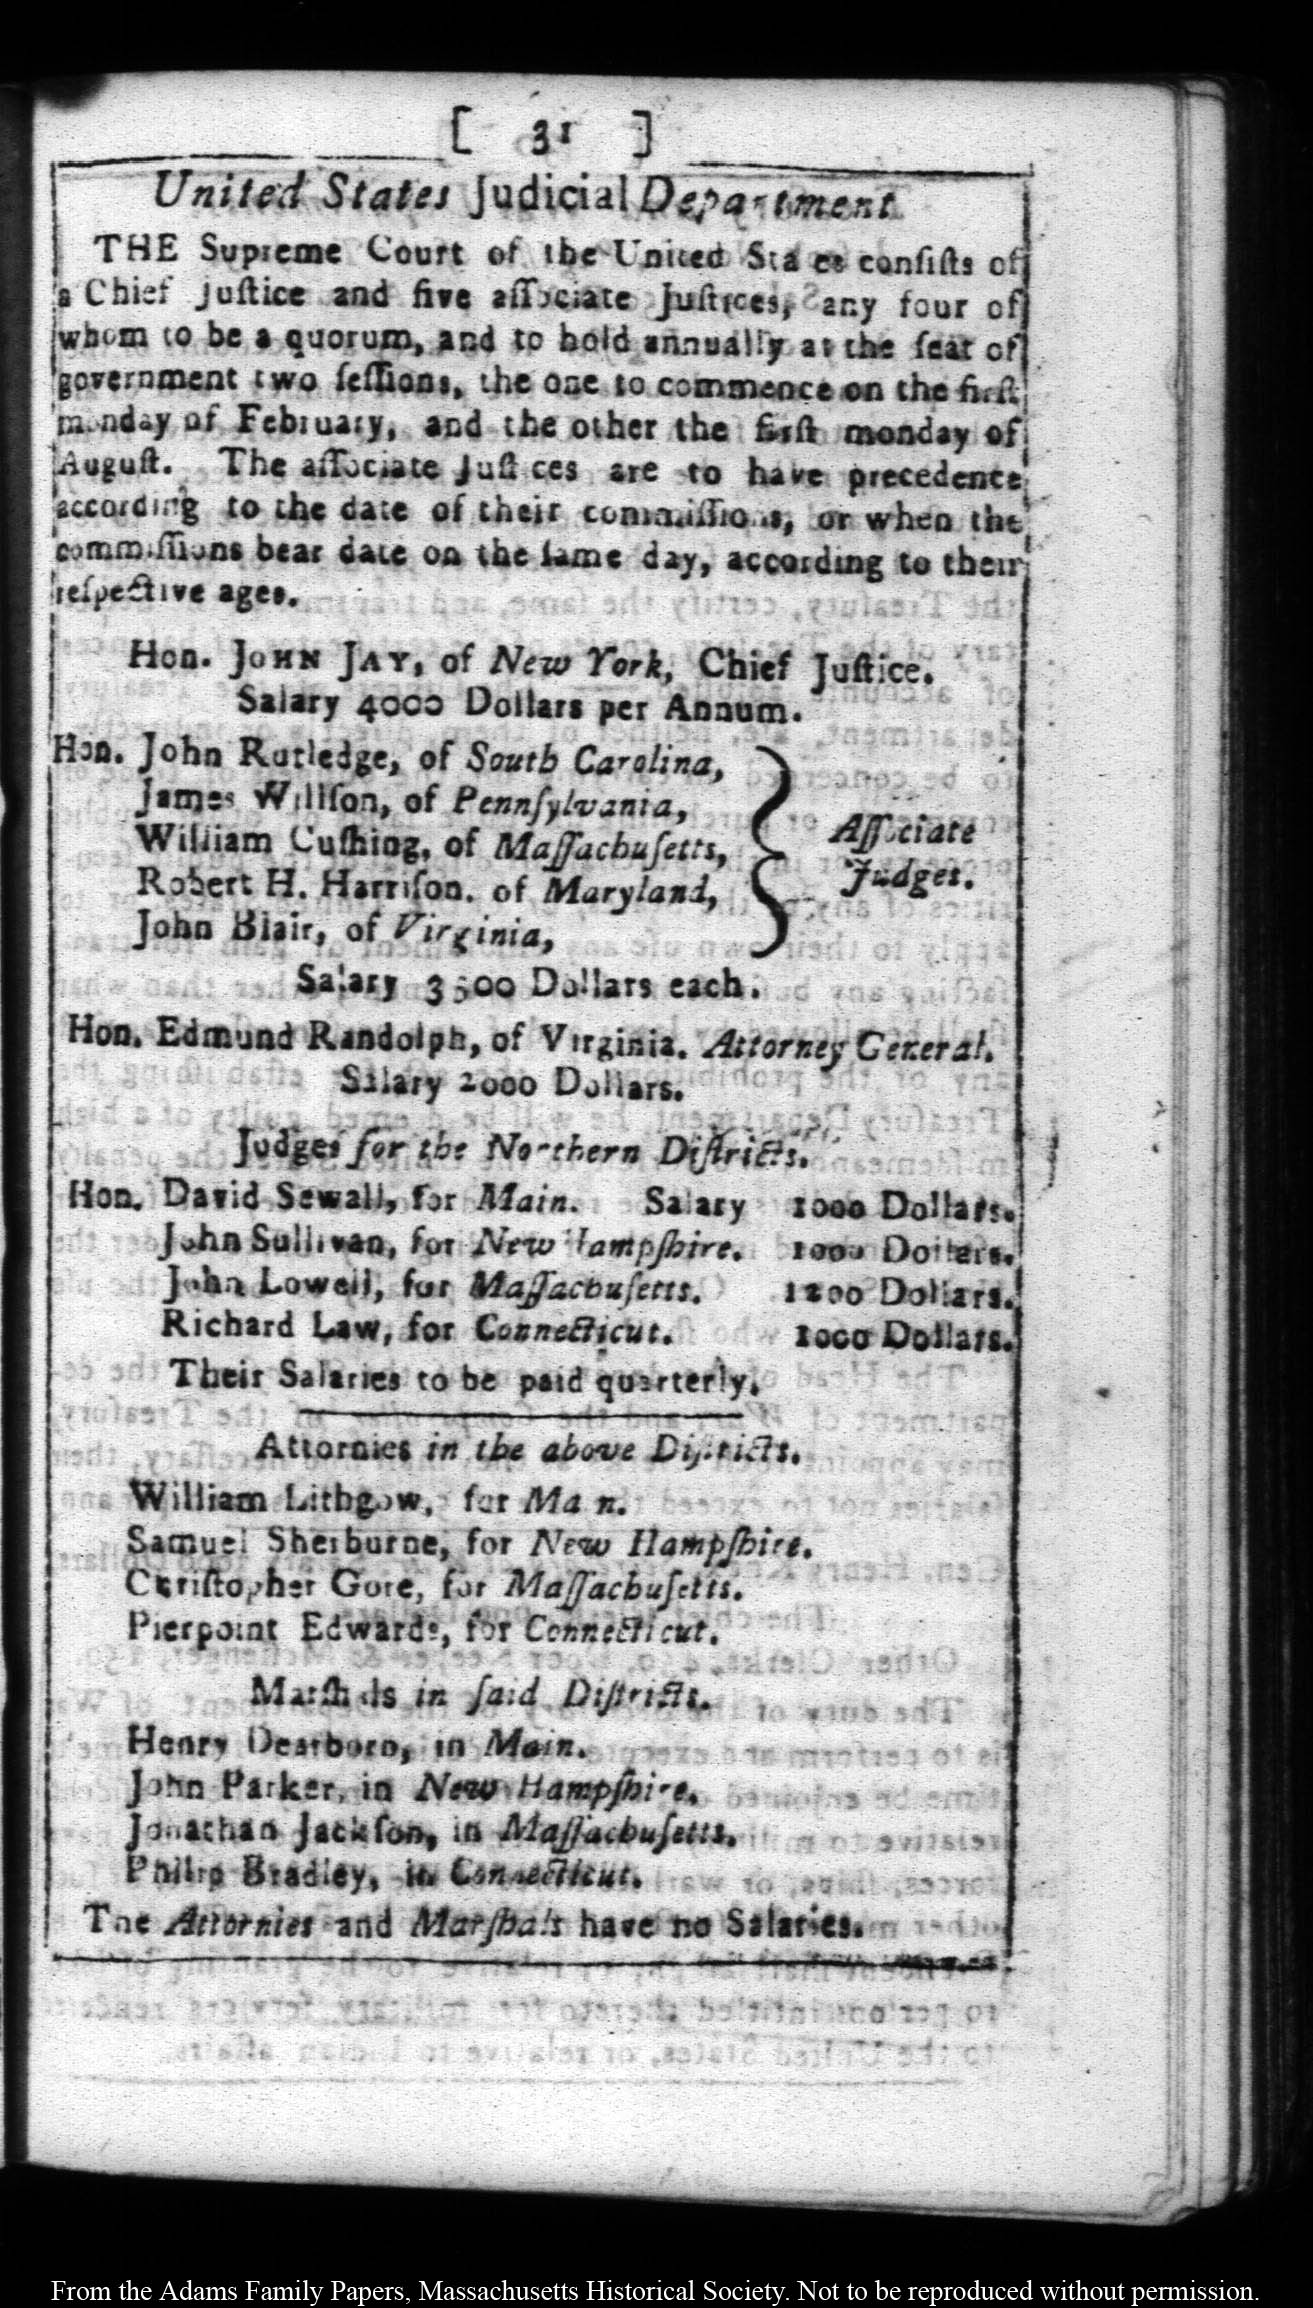 [ 31 ]
United States Judicial Department
THE Supreme Court of the United Sta es conſiſts of
a Chief Juſtice and five aſſociate Juſtices, any four of
whom to be a quorum, and to hold annually at the ſeat of
government two ſeſſions, the one to commence on the firſt
monday of February, and the other the firſt monday of
Auguſt. The aſſociate Juſt ces are to have precedence
according to the date of their commiſſions, or when the
commiſſions bear date on the ſame day, according to their
reſpective ages.
Hon. JOHN JAY, of New York, Chief Juſtice.
Salary 4000 Dollars per Annum.
Hon. John Rutledge, of South Carolina,
James Willſon, of Pennſylvania,
William Cuſhing, of Maſſachuſetts,
Robert H. Harriſon. of Maryland,
John Blair, of Virginia,
Aſſociate
Judges.
Salary 3500 Dollars each.
Hon. Edmund Randolph, of Virginia. Attorney General.
Salary 2000 Dollars.
Judges for the Northern Diſtricts.
Hon. David Sewall, for Main. Salary 1000 Dollars.
John Sullivan, for New Hampſhire. 1000 Dollars.
John Lowell, for Maſſachuſetts. 1200 Dollars.
Richard Law, for Connecticut. 1000 Dollars.
Their Salaries to be paid quarterly.
Attornies in the above Diſtricts.
William Lithgow, for Ma n.
Samuel Sherburne, for New Hampſhire.
Chriſtopher Gore, for Maſſachuſetts.
Pierpoint Edwards, for Connecticut.
Marſhals in ſaid Diſtricts.
Henry Dearborn, in Main.
John Parker, in New Hampſhire.
Jonathan Jackſon, in Maſſachuſetts.
Philip Bradley, in Connecticut.
The Attornies and Marſhals have no Salaries.
From the Adams Family Papers, Massachusetts Historical Society. Not to be reproduced without permission.